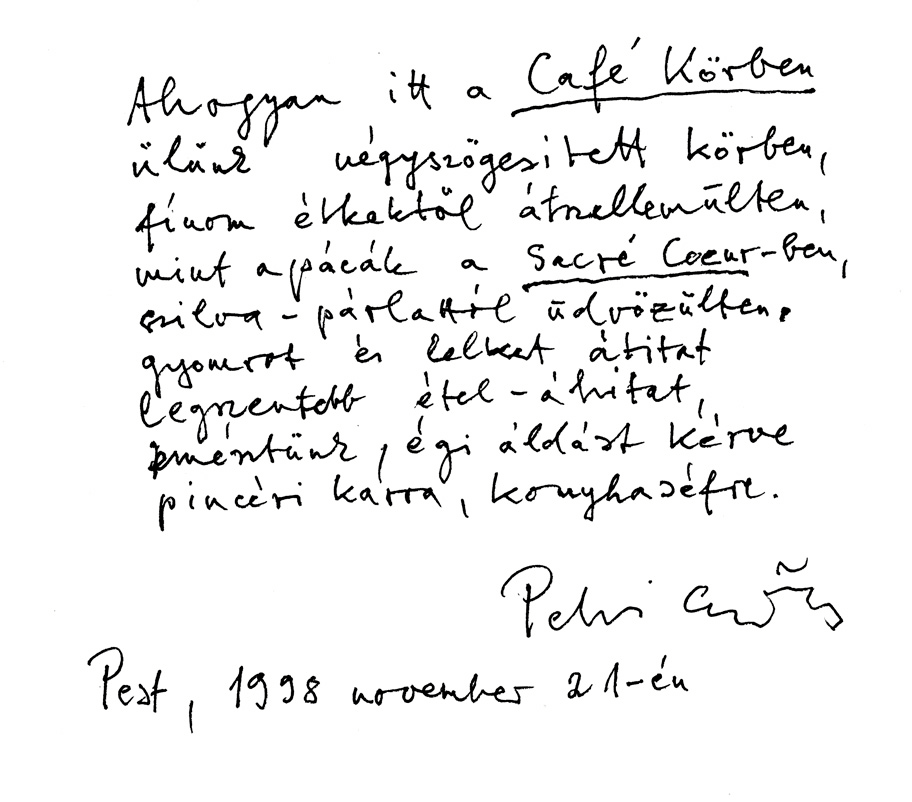 Ahogyan itt a Café Körben
ülünk négyszögesitett körben,
finom étkektől átszellemülten,
mint apácák a Sacré Coeur-ben,
szilva-párlattól üdvözülten.
gyomrot és lelket átitat
legszentebb étel-áhitat,
eméntünk, égi áldást kérve
pincéri karra, konyhaséfre.
Petri György
Pest, 1998 november 21-én